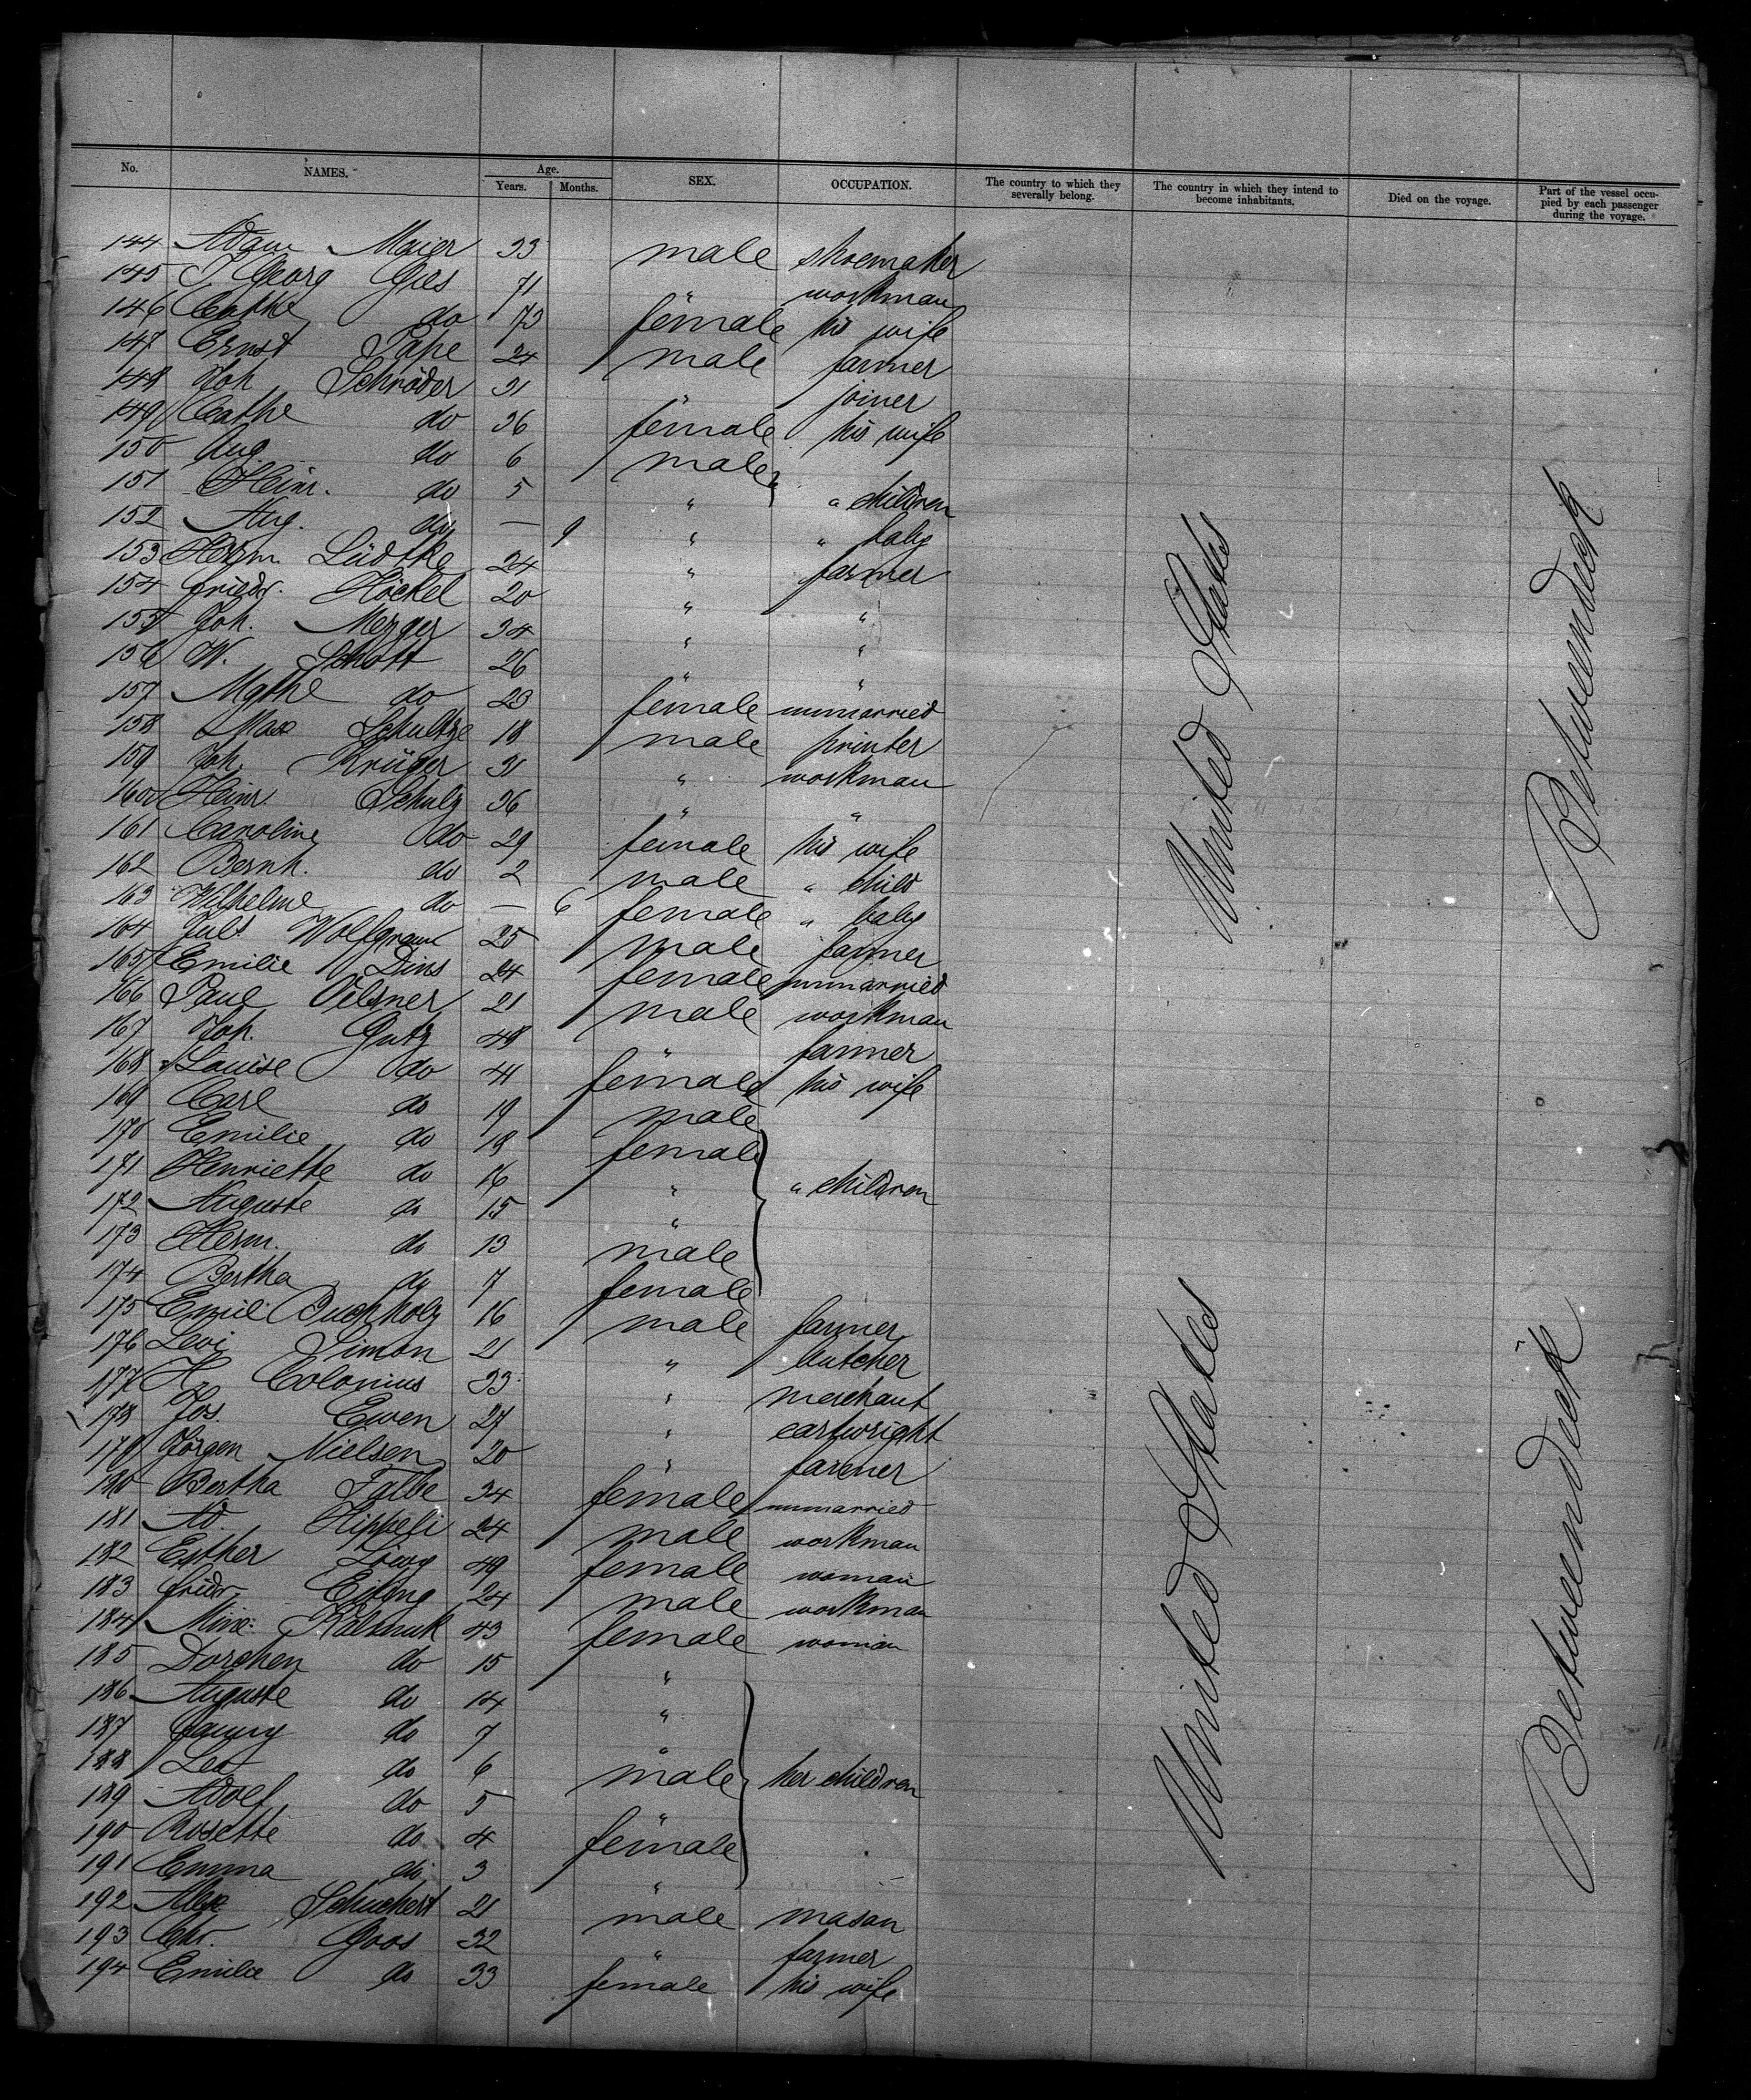 No. NAMES. Age. Years. Months. SEX. OCCUPATION. The country to which they severally belong. The country in which they intend to become inhabitants. Died on the voyage. Part of the vessel occupied by each passenger during the voyage.
144 Adam Maier 33 male shoemaker
145 J Georg Gies 71 " workman
146 Cathe do 73 female his wife
147 Ernst Pape 24 male farmer
148 Joh Schröder 31 " joiner
149 Cathe do 36 female his wife
150 Aug do 6 male
151 Heinr. do 5 " " children
152 Aug. do — 9 " " baby
153 Herm. Lüdtke 24 " farmer
154 Friedr. Höckel 20 " "
155 Joh. Merger 34 " "
156 W. Schott 26 " "
157 Mathe do 23 female unmarried
158 Max Schultze 18 male printer
159 Joh. Krüger 31 " workman
160 Heinr. Schulz 36 " "
161 Caroline do 29 female his wife
162 Bernh. do 2 male " child
163 Wilhelme do — 6 female " baby
164 Juls Wolfgram 25 male farmer
165 Emilie Dins 24 female unmarried
166 Paul Oelsner 21 male workman
167 Joh. Gutz 48 " farmer
168 Louise do 41 female his wife
169 Carl do 19 male
170 Emilie do 18 female
171 Henriette do 16 " " children
172 Auguste do 15 "
173 Herm. do 13 male
174 Bertha do 7 female
175 Emil Buchholz 16 male farmer
176 Levi Simon 21 " butcher
177 H. Colonius 33 " merchant
178 Jos. Ewen 27 " cartwright
179 Jörgen Nielsen 20 " farmer
180 Bertha Falbe 34 female unmarried
181 Ad. Hippeli 24 male workman
182 Esther Löwy 49 female woman
183 Fridr. 24 male workman
184 Mine 43 female woman
185 Dorchen do 15 "
186 Auguste do 14 "
187 Fanny do 7 "
188 Leo do 6 male her children
189 Adolf do 5 "
190 Rosette do 4 female
191 Emma do 3 "
192 Alex Schuchert 21 male mason
193 Chr. Goos 32 " farmer
194 Emilie do 33 female his wife
United States
Betweendeck
United States
Betweendeck